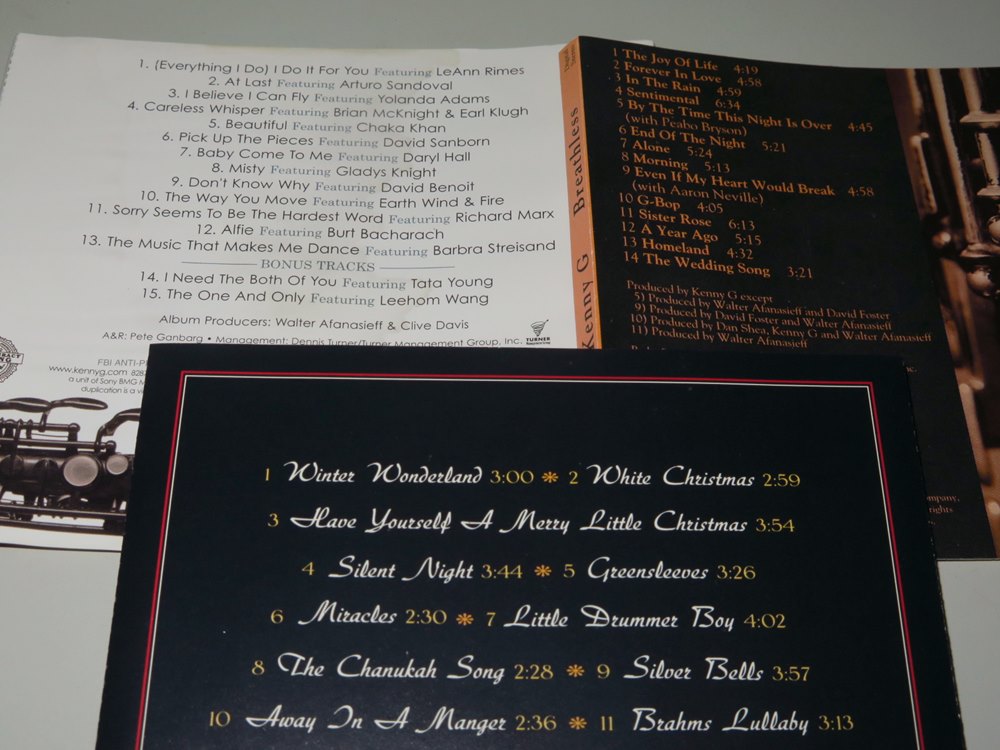 1. (Everything I Do) I Do It For You Featuring LeAnn Rimes
2. At Last Featuring Arturo Sandoval
3. I Believe I Can Fly Featuring Yolanda Adams
4. Careless Whisper Featuring Brian McKnight & Earl Klugh
5. Beautiful Featuring Chaka Khan
6. Pick Up The Pieces Featuring David Sanborn
7. Baby Come To Me Featuring Daryl Hall
8. Misty Featuring Gladys Knight
9. Don't Know Why Featuring David Benoit
10. The Way You Move Featuring Earth Wind & Fire
11. Sorry Seems To Be The Hardest Word Featuring Richard Marx
12. Alfie Featuring Burt Bacharach
13. The Music That Makes Me Dance Featuring Barbra Streisand
BONUS TRACKS
14. I Need The Both Of You Featuring Tata Young
15. The One And Only Featuring Leehom Wang
Album Producers: Walter Afanasieff & Clive Davis
A&R: Pete Ganbarg • Management: Dennis Turner/Turner Management Group, Inc.
TURNER
FBI ANTI-P
www.kennyg.com
a unit of Sony BMG M
duplication is a
Kenny G Breathless
1 The Joy Of Life 4:19
2 Forever In Love 4:58
3 In The Rain 4:59
4 Sentimental 6:34
5 By The Time This Night Is Over 4:45
(with Peabo Bryson)
6 End Of The Night 5:21
7 Alone 5:24
8 Morning 5:13
9 Even If My Heart Would Break 4:58
(with Aaron Neville)
10 G-Bop 4:05
11 Sister Rose 6:13
12 A Year Ago 5:15
13 Homeland 4:32
14 The Wedding Song 3:21
Produced by Kenny G except
5) Produced by Walter Afanasieff and David Foster
9) Produced by David Foster and Walter Afanasieff
10) Produced by Dan Shea, Kenny G and Walter Afanasieff
11) Produced by Walter Afanasieff
nc.
ompany,
rights
1 Winter Wonderland 3:00 * 2 White Christmas 2:59
3 Have Yourself A Merry Little Christmas 3:54
4 Silent Night 3:44 * 5 Greensleeves 3:26
6 Miracles 2:30 * 7 Little Drummer Boy 4:02
8 The Chanukah Song 2:28 * 9 Silver Bells 3:57
10 Away In A Manger 2:36 * 11 Brahms Lullaby 3:13